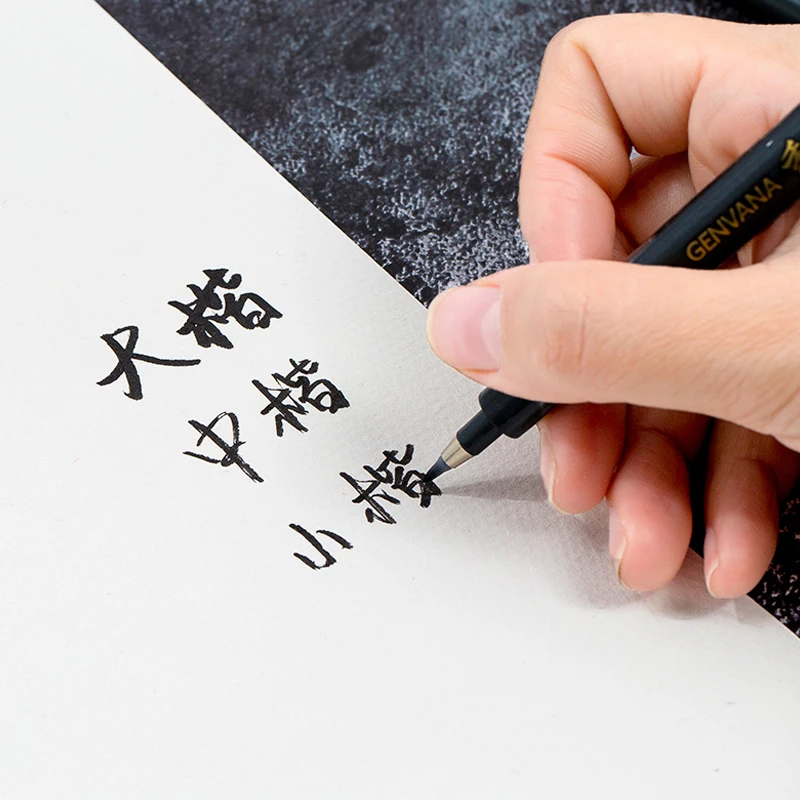 大楷
中楷
小楷
GENVANA